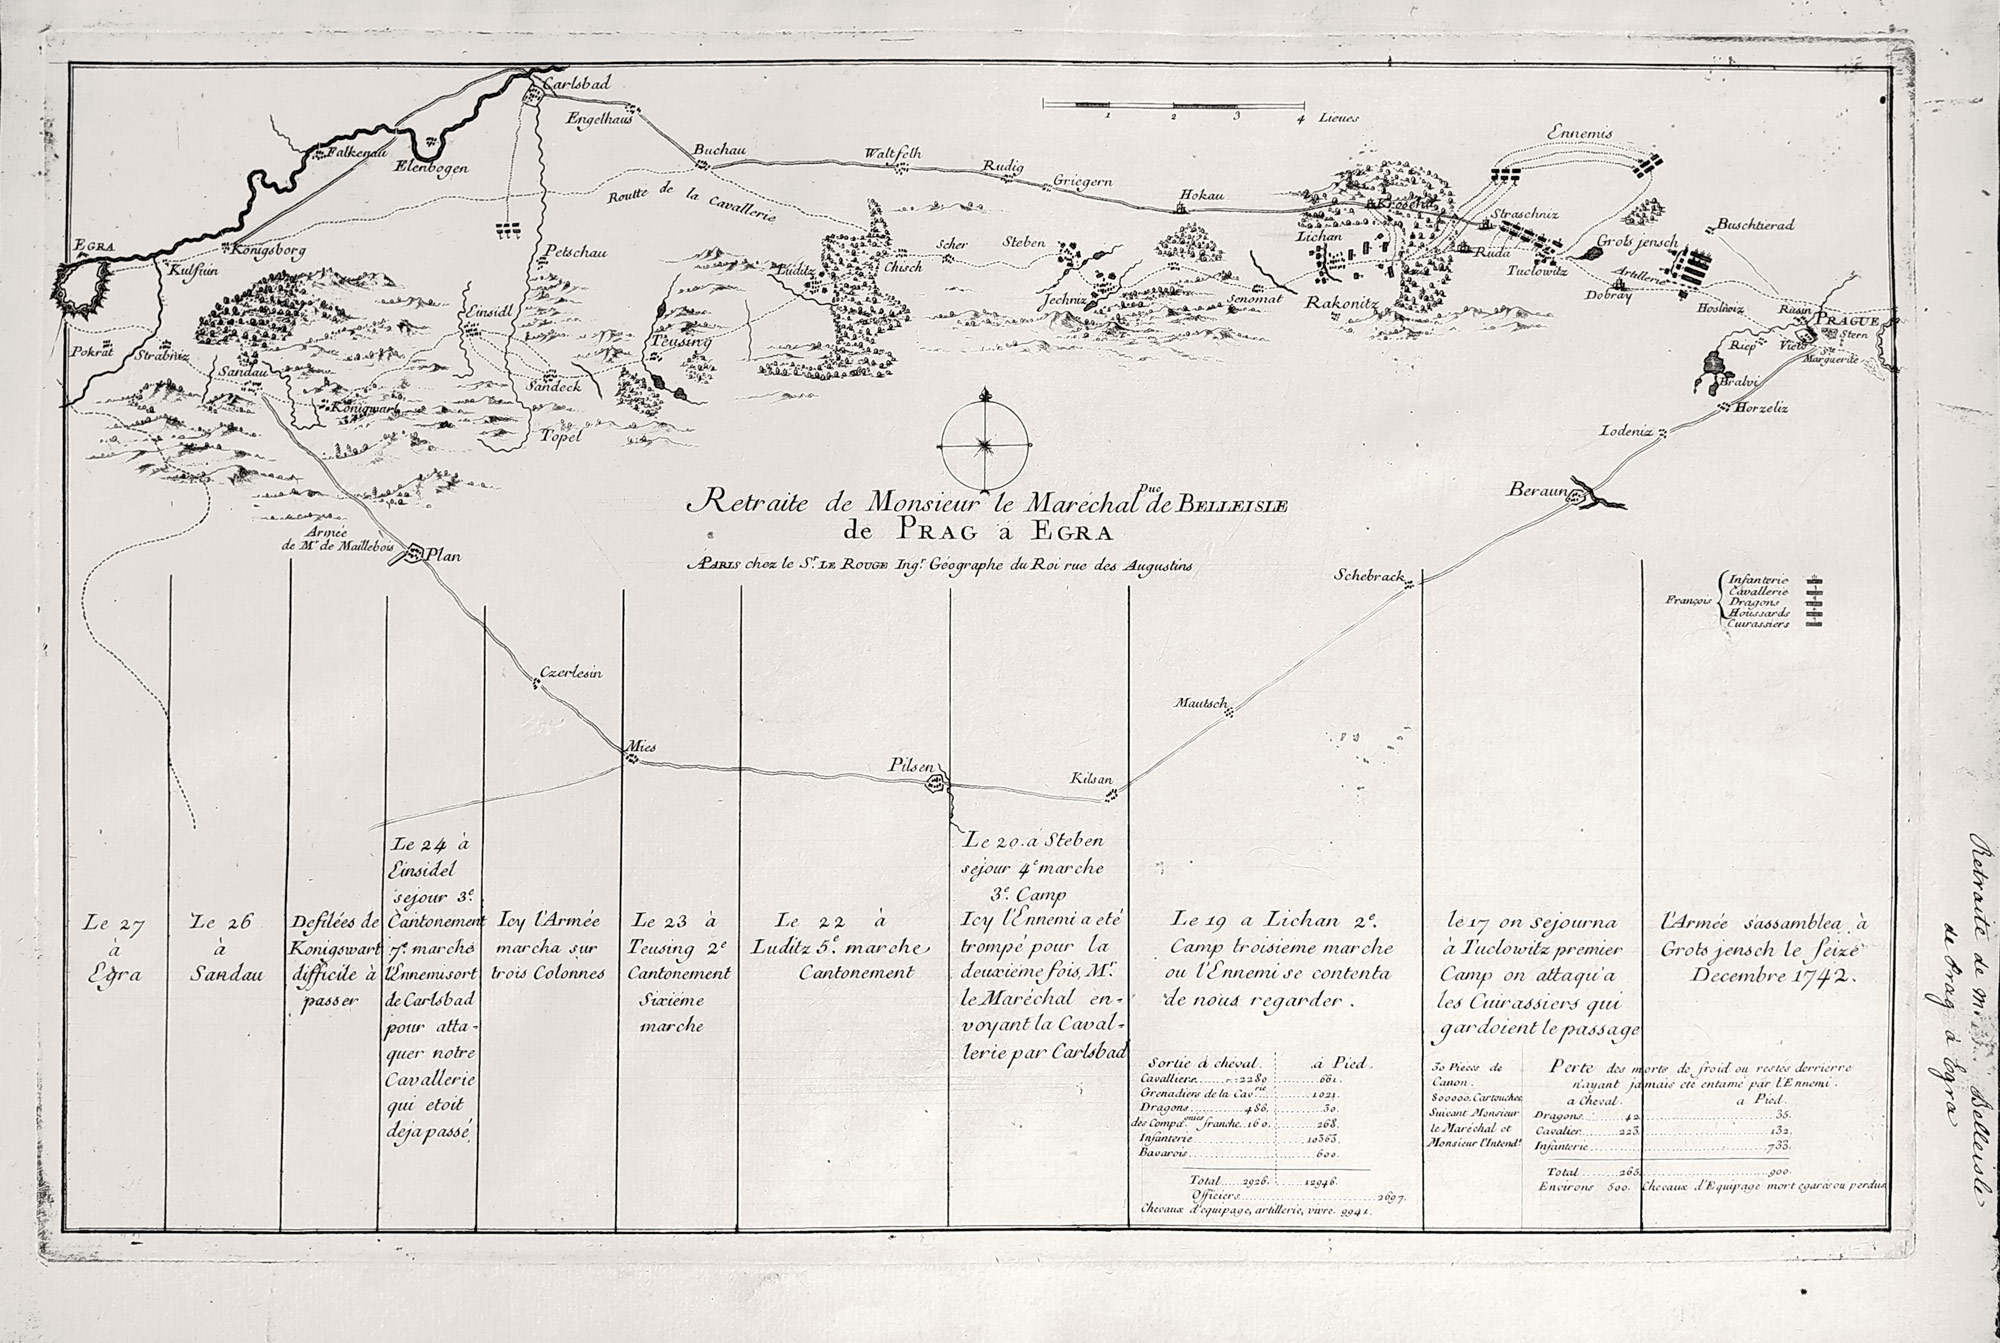 Carlsbad
Engelhaus
1 2 3 4 Lieues
Ennemis
Falkenau
Elenbogen
Buchau
Waltfelh
Rudig
Griegern
Hokau
Routte de la Cavallerie
Straschniz
Buschtierad
EGRA
Konigsborg
Kulfiuin
Petschau
Luditz
Chisch
Scher
Steben
Lichan
Ruda
Tuclowitz
Grots jensch
Artillerie
Dobray
Jechniz
Senomat
Rakonitz
Hosliwiz
Rusin
PRAGUE
Stern
Riep
Ste
Marguerite
Bralvi
Horzeliz
Lodeniz
Beraun
Einsidl
Teusing
Sandeck
Pokrat
Strabniz
Sandau
Konigwart
Topel
Retraite de Monsieur le Maréchal Duc de BELLEISLE
de PRAG á EGRA
A PARIS chez le Sr. LE ROUGE Ingr. Géographe du Roi rue des Augustins
Armée
de Mr. de Maillebois
Plan
Schebrack
François
Infanterie
Cavallerie
Dragons
Houssards
Cuirassiers
Czerlesin
Mautsch
Mies
Pilsen
Kilsan
Le 27
à
Egra
Le 26
à
Sandau
Defilées de
Konigswart
difficile à
passer
Le 24 à
Einsidel
sejour 3e.
Cantonement
7e. marche
l'Ennemi sort
de Carlsbad
pour atta-
quer notre
Cavallerie
qui etoit
deja passé
Icy l'Armée
marcha sur
trois Colonnes
Le 23 à
Teusing 2e
Cantonement
Sixiéme
marche
Le 22 à
Luditz 5e. marche
Cantonement
Le 20. à Steben
sejour 4e marche
3e. Camp
Icy l'Ennemi a eté
trompé pour la
deuxiéme fois, Mr.
le Maréchal en-
voyant la Caval-
lerie par Carlsbad
Le 19 a Lichan 2e.
Camp troisieme marche
ou l'Ennemi se contenta
de nous regarder.
Sortie à cheval. à Pied.
Cavalliers 2280 661.
Grenadiers de la Cavrie 1021.
Dragons 486. 30.
des Compagnies franche. 160. 268.
Infanterie 10363.
Bavarois 600.
Total 2926. 12946.
Officiers 2697.
Chevaux d'equipage, artillerie, vivre. 9941.
le 17 on sejourna
à Tuclowitz premier
Camp on attaqu'a
les Cuirassiers qui
gardoient le passage
30 Pieces de
Canon.
800000. Cartouches
Suivant Monsieur
le Maréchal et
Monsieur l'Intendt.
l'Armée s'assamblea à
Grots jensch le Seize
Decembre 1742.
Perte des morts de froid ou restes derrierre
n'ayant jamais eté entamé par l'Ennemi.
a Cheval. a Pied.
Dragons 42 35.
Cavalier 223 132.
Infanterie 733.
Total 265. 900.
Environs 500. Chevaux d'Equipage mort egarés ou perdus
Retraite de Belleisle
de Prag à Egra